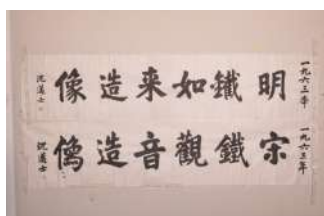 一九六三年
明鐵如来造像
沈邁士
一九六三年
宋鐵觀音造像
沈邁士